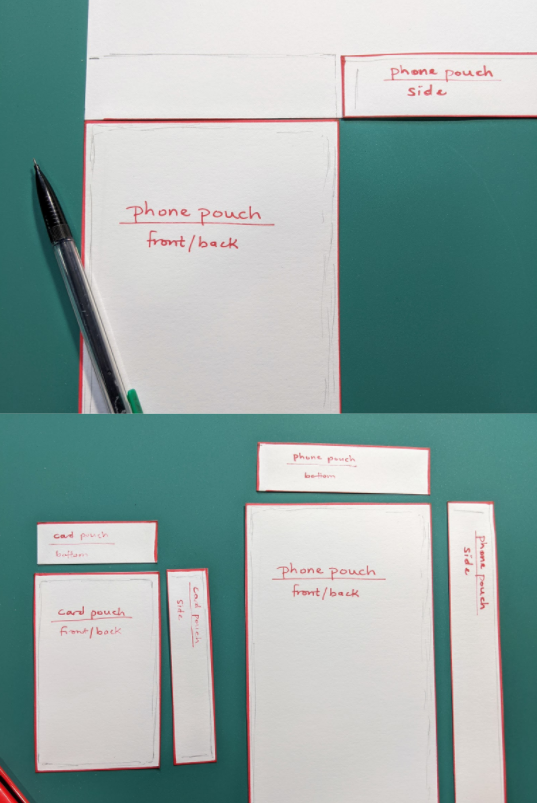 phone pouch
side
phone pouch
front/back
phone pouch
bottom
card pouch
bottom
phone pouch
side
phone pouch
front/back
card pouch
side
card pouch
front/back